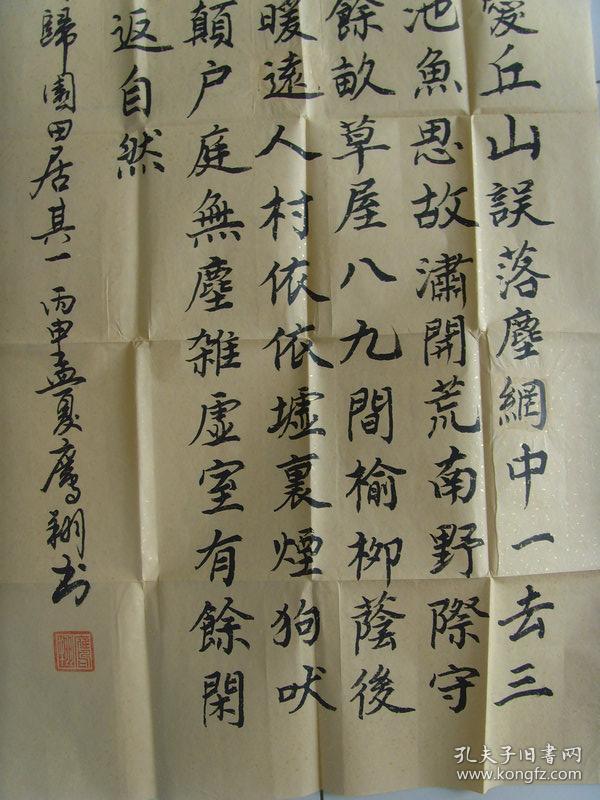 愛丘山誤落塵網中一去三
池魚思故潚開荒南野際守
餘畝草屋八九間榆柳蔭後
暖遠人村依依墟裏煙狗吠
顛户庭無塵雜虛室有餘閑
返自然
歸園田居其一 丙申孟夏鷹翔书
孔夫子旧書网
www.kongfz.com